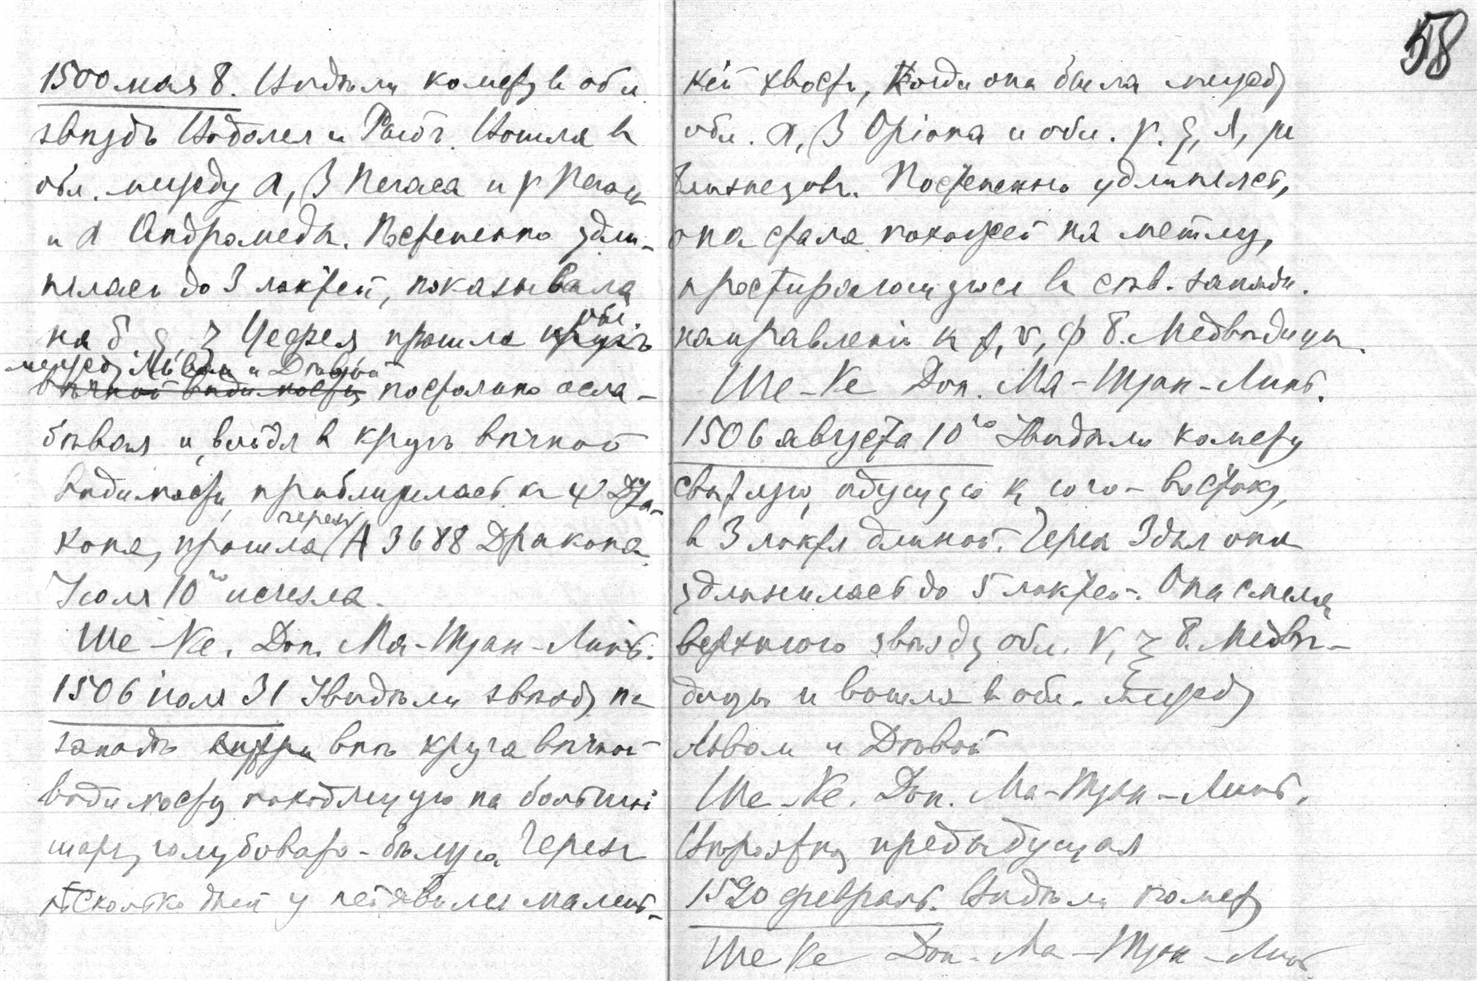 58
1500 мая 8. Видѣли комету в обл.
звѣздъ Водолея и Рыбъ. Вошла в
обл. между α, β Пегаса и γ Пегаса
и α Андромеды. Постепенно удли-
нялась до 3 локтей, показывала
на δ ξ Цефея прошла обл.
между Львом и Дѣвой
вѣчной видимости постоянно осла-
бѣвая и, войдя в кругъ вѣчной
видимости, приблизилась к ψ Дра-
кона, прошла через А 3688 Дракона
Іюля 10го исчезла.
Ше-Ке. Доп. Ма-Туан-Линь.
1506 іюля 31 Увидѣли звѣзду на
западѣ внутри внѣ круга вѣчной
видимости, походящую на большой
шаръ, голубовато-бѣлую. Через
нѣсколько дней у ней явился малень-
кій хвостъ, когда она была между
обл. α, β Оріона и обл. γ, ξ, λ, μ
Близнецовъ. Постепенно удлиняясь,
она стала похожей на метлу,
простирающуюся в сѣв. запад.
направленіи к υ, φ Б. Медвѣдицы.
Ше-Ке Доп. Ма-Туан-Линь.
1506 августа 10го Увидѣли комету
свѣтлую, идущую к юго-востоку,
в 3 локтя длиной. Через 3 дня она
удлинилась до 5 локтей. Она смела
верхнюю звѣзду обл. ν, ξ Б. Медвѣ-
дицы и вошла в обл. между
Львом и Дѣвой
Ше-Ке. Доп. Ма-Туан-Линь.
Вѣроятно предыдущая
1520 февраль. Видѣли комету
Ше Ке Доп. Ма-Туан-Линь